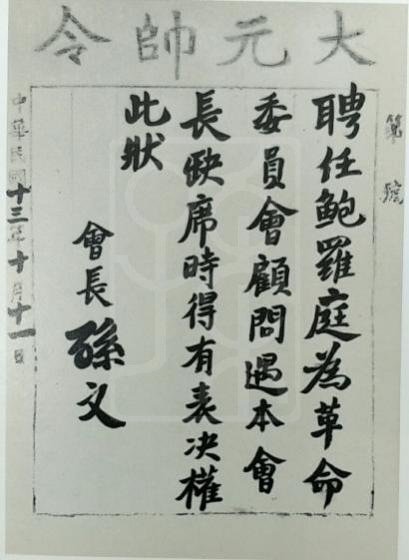 大元帥令
第　號
聘任鮑羅庭為革命
委員會顧問遇本會
長缺席時得有表决權
此狀
會長孫文
中華民國十三年十月十一日